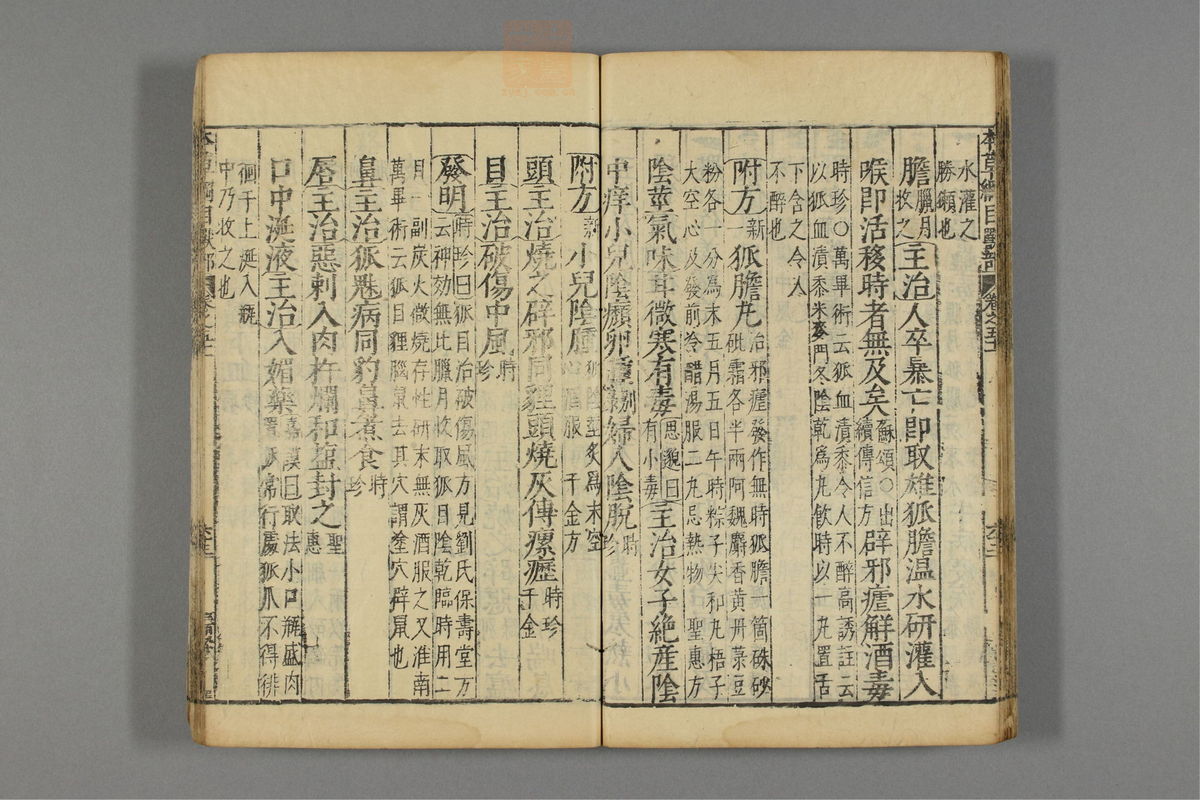 本草綱目獸部 卷之五十一
水灌之
勝鎻也
膽臘月收之主治人卒暴亡即取雄狐膽温水研灌入
喉即活移時者無及矣蘇頌○出續傳信方辟邪瘧解酒毒
時珍○萬畢術云狐血漬黍令人不醉高誘註云
以狐血漬黍米麥門冬陰乾爲丸飲時以一丸置舌
下含之令人
不醉也
附方新一狐膽丸治邪瘧發作無時狐膽一箇硃砂
砒霜各半兩阿魏麝香黄丹菉豆
粉各一分爲末五月五日午時粽子尖和丸梧子
大空心及發前冷醋湯服二丸忌熱物聖惠方
陰莖氣味甘微寒有毒思邈曰有小毒主治女子絶産陰
中痒小兒陰㿗卵腫别録婦人陰脱時珍
附方新一小兒陰腫狐陰莖炙爲末空心酒服千金方
頭主治燒之辟邪同貍頭燒灰傅瘰癧時珍千金
目主治破傷中風時珍
發明時珍曰狐目治破傷風方見劉氏保壽堂方
云神効無比臘月收取狐目陰乾臨時用二
目一副炭火微燒存性研末無灰酒服之又淮南
萬畢術云狐目狸腦鼠去其穴謂塗穴辟鼠也
鼻主治狐魅病同豹鼻煮食時珍
唇主治惡刺入肉杵爛和鹽封之聖惠
口中涎液主治入媚藥嘉謨曰取法小口瓶盛肉
置狐常行處狐爪不得徘
徊于上涎入瓶
中乃收之也
本草綱目獸部 卷之五十一